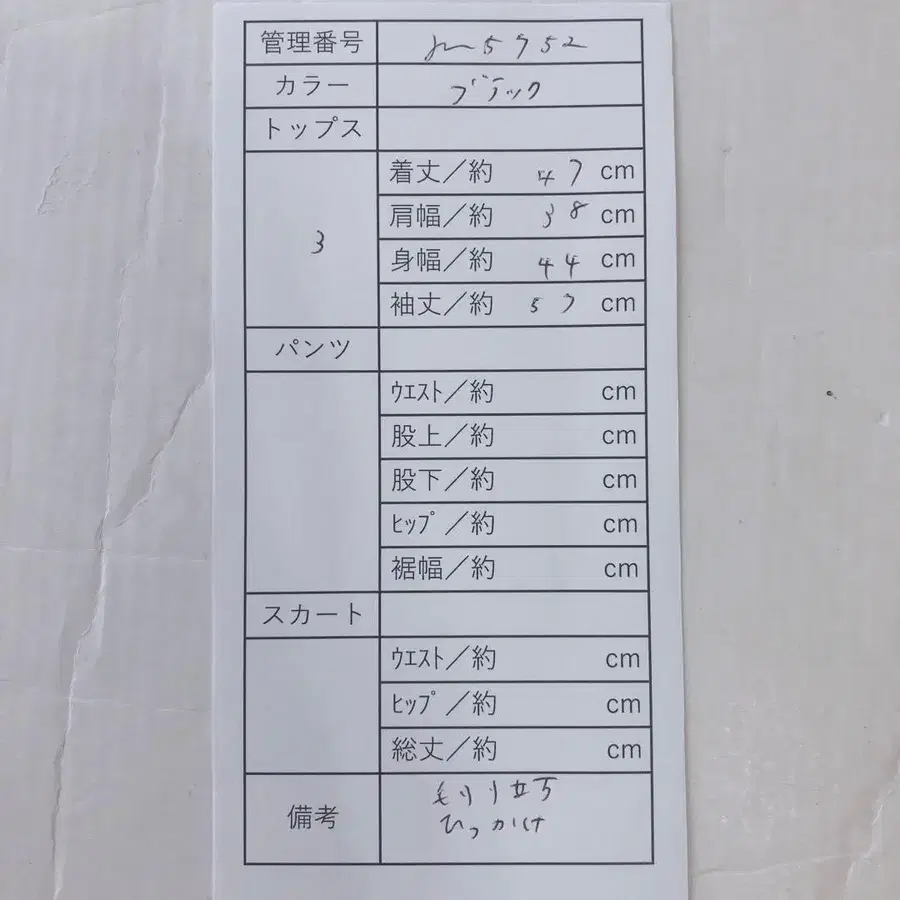 管理番号 5952
カラー ブラック
トップス
3
着丈／約 47 cm
肩幅／約 38 cm
身幅／約 44 cm
袖丈／約 57 cm
パンツ
ｳｴｽﾄ／約 cm
股上／約 cm
股下／約 cm
ﾋｯﾌﾟ／約 cm
裾幅／約 cm
スカート
ｳｴｽﾄ／約 cm
ﾋｯﾌﾟ／約 cm
総丈／約 cm
備考
ひっかけ